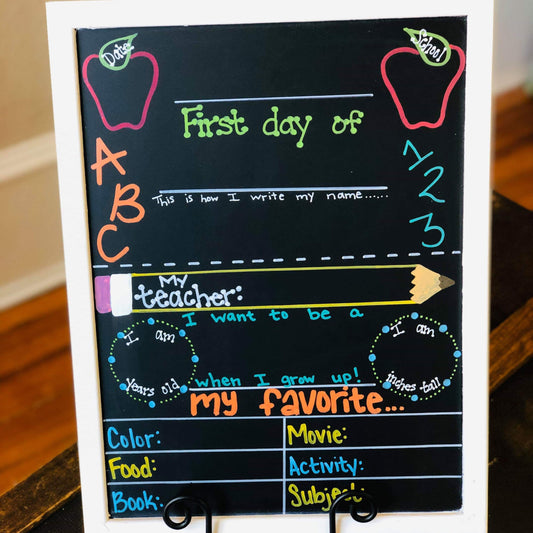 Date:
School:
First day of
A
B
C
1
2
3
This is how I write my name......
My
teacher:
I want to be a
I am
years old
I am
inches tall
when I grow up!
my favorite...
Color:
Movie:
Food:
Activity:
Book:
Subject: